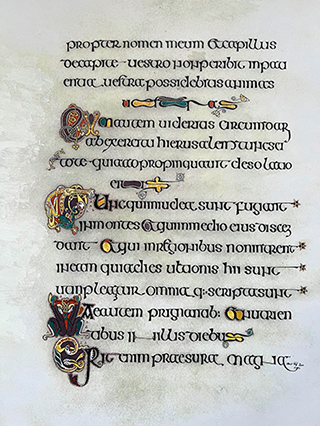 propter nomen meum et capillus
decapite uestro nonperibit inpati
entia uestra possidebitis animas
Cum autem uideritis circumdari
abexercitu hierusalem tunc
scitote quia adpropinquauit desolatio
eius
Tunc qui in iudea sunt fugiant
in montes et qui in medio eius disce
dant et qui in regionibus non intrent
in eam quia dies ultionis hii sunt
ut impleantur omnia q: scripta sunt
Vae autem prignanab: et nutrien
tibus in illis diebus
Erit enim praesura magna